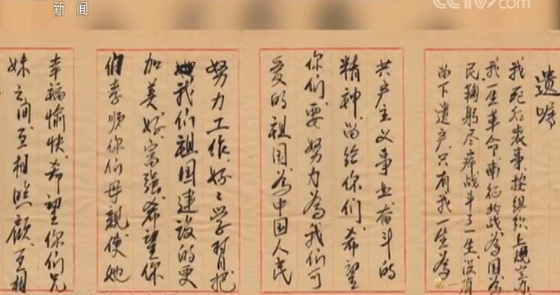 新闻
CCTV.com
遗嘱
我死后丧事，按组织上规定
我一生革命，南征北战，为国为
民鞠躬尽瘁，战斗了一生，没有
留下遗产，只有我一生为
共产主义事业奋斗的
精神，留给你们。希望
你们要努力为我们可
爱的祖国，为中国人民
努力工作，好好学习，把
我们祖国建设的更
加美好富强。希望你
们孝顺你们母亲，使她
幸福愉快，希望你们兄
妹之间互相照顾，互相